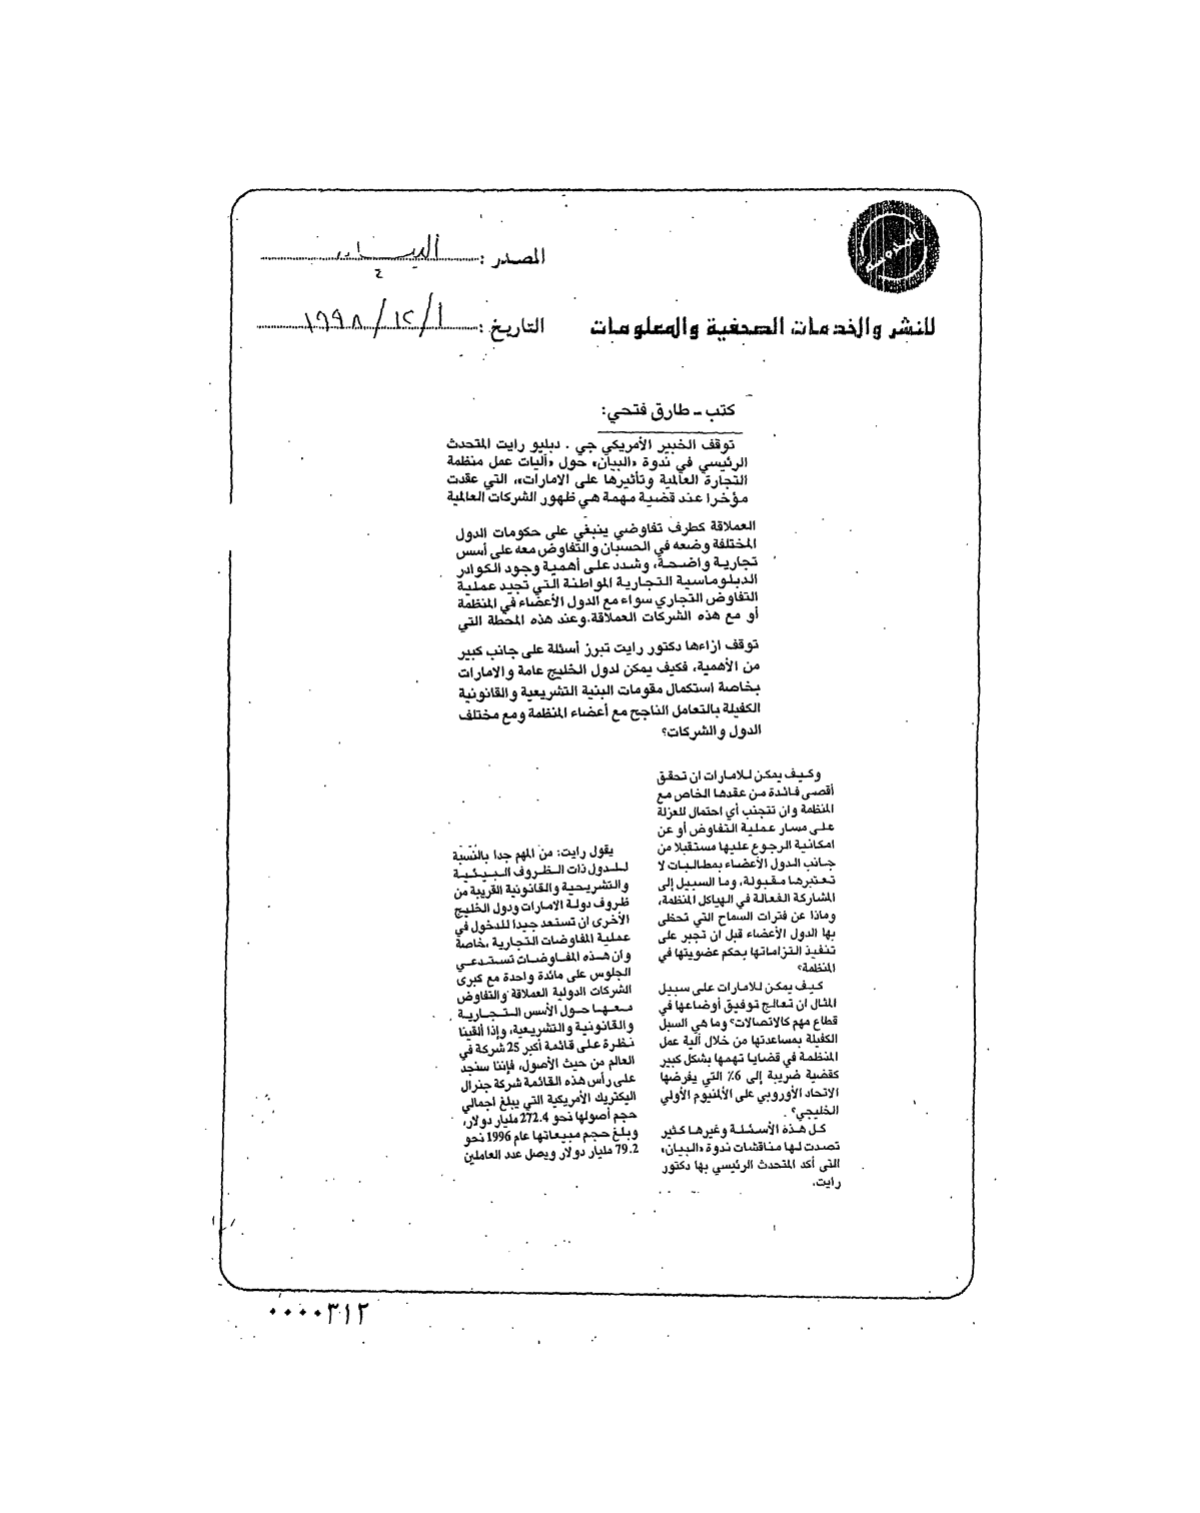 المصدر : البيان
التاريخ : ١٩٩٨/١٢/١
للنشر والخدمات الصحفية والمعلومات
كتب ـ طارق فتحي:
توقف الخبير الأمريكي جي . دبليو رايت المتحدث
الرئيسي في ندوة «البيان» حول «آليات عمل منظمة
التجارة العالمية وتأثيرها على الامارات»، التي عقدت
مؤخرا عند قضية مهمة هي ظهور الشركات العالمية
العملاقة كطرف تفاوضي ينبغي على حكومات الدول
المختلفة وضعه في الحسبان والتفاوض معه على أسس
تجارية واضحة، وشدد على أهمية وجود الكوادر
الدبلوماسية التجارية المواطنة التي تجيد عملية
التفاوض التجاري سواء مع الدول الأعضاء في المنظمة
أو مع هذه الشركات العملاقة.وعند هذه المحطة التي
توقف ازاءها دكتور رايت تبرز أسئلة على جانب كبير
من الأهمية، فكيف يمكن لدول الخليج عامة والامارات
بخاصة استكمال مقومات البنية التشريعية والقانونية
الكفيلة بالتعامل الناجح مع أعضاء المنظمة ومع مختلف
الدول والشركات؟
وكيف يمكن للامارات ان تحقق
أقصى فائدة من عقدها الخاص مع
المنظمة وان تتجنب أي احتمال للعزلة
على مسار عملية التفاوض أو عن
امكانية الرجوع عليها مستقبلا من
جانب الدول الأعضاء بمطالبات لا
تعتبرها مقبولة، وما السبيل إلى
المشاركة الفعالة في الهياكل المنظمة،
وماذا عن فترات السماح التي تحظى
بها الدول الأعضاء قبل ان تجبر على
تنفيذ التزاماتها بحكم عضويتها في
المنظمة؟
كيف يمكن للامارات على سبيل
المثال ان تعالج توفيق أوضاعها في
قطاع مهم كالاتصالات؟ وما هي السبل
الكفيلة بمساعدتها من خلال آلية عمل
المنظمة في قضايا تهمها بشكل كبير
كقضية ضريبة إلى 6٪ التي يفرضها
الاتحاد الأوروبي على الألمنيوم الأولي
الخليجي؟ .
كل هذه الأسئلة وغيرها كثير
تصدت لها مناقشات ندوة «البيان»
التى أكد المتحدث الرئيسي بها دكتور
رايت.
يقول رايت: من المهم جدا بالنسبة
للدول ذات الظروف البيئية
والتشريحية والقانونية القريبة من
ظروف دولة الامارات ودول الخليج
الأخرى ان تستعد جيدا للدخول في
عملية المفاوضات التجارية ،خاصة
وان هذه المفاوضات تستدعي
الجلوس على مائدة واحدة مع كبرى
الشركات الدولية العملاقة والتفاوض
معها حول الأسس التجارية
والقانونية والتشريعية، وإذا ألقينا
نظرة على قائمة أكبر 25 شركة في
العالم من حيث الأصول، فإننا سنجد
على رأس هذه القائمة شركة جنرال
اليكتريك الأمريكية التي يبلغ اجمالي
حجم أصولها نحو 272.4 مليار دولار،
وبلغ حجم مبيعاتها عام 1996 نحو
79.2 مليار دولار ويصل عدد العاملين
٠٠٠٠٣١٢